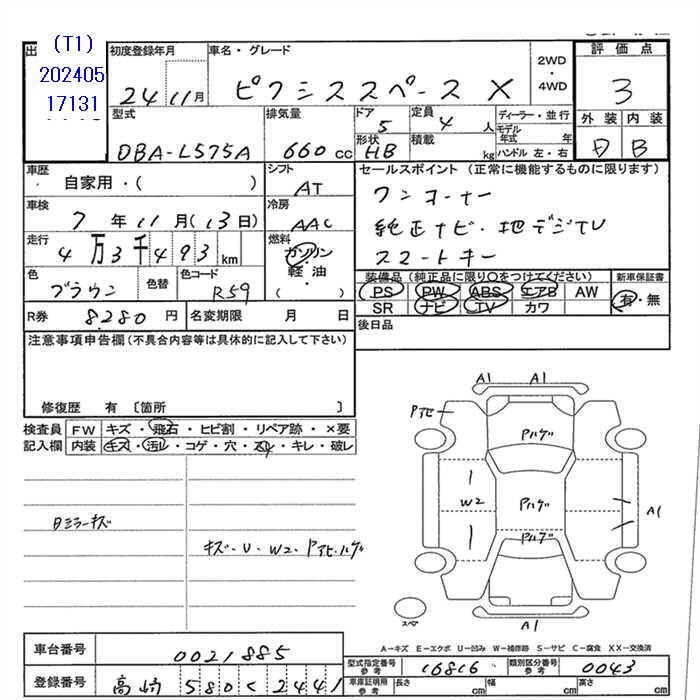 出
(T1)
202405
17131
初度登録年月
24 11月
車名・グレード
ピクシススペース X
2WD
・
4WD
評価点
3
外装 内装
D B
型式
DBA-L575A
排気量
660 cc
ドア
5
定員
4 人
形状
HB
積載
kg
ディーラー・並行
モデル年式 年
ハンドル 左・右
車歴
自家用・( )
シフト
AT
車検
7 年 11 月 (13 日)
冷房
AAC
走行
4 万 3 千 4 9 3 km
燃料
ガソリン
・
軽油
・
( )
色
ブラウン
色替
色コード
R59
セールスポイント (正常に機能するものに限ります)
ワンオーナー
純正ナビ・地デジTV
スマートキー
装備品(純正品に限り○をつけてください)
PS PW ABS エアB AW
SR ナビ TV カワ
新車保証書
有・無
R券 8.280 円
名変期限 月 日
後日品
注意事項申告欄(不具合内容等は具体的に記入して下さい)
修復歴 有 〔箇所 〕
検査員 FW キズ・飛石・ヒビ割・リペア跡・×要
記入欄 内装 キズ・汚レ・コゲ・穴・スレ・キレ・破レ
キズ・U・W2・Pアセ・ハゲ
A1 A1
Pアセ
Pハゲ
W2
Pハゲ
A1
Pハゲ
スペア
A1
A-キズ E-エクボ U-凹み W-補修跡 S-サビ C-腐食 XX-交換済
車台番号 0021885
登録番号 高崎 580 く 2441
型式指定番号 参考 16816
類別区分番号 参考 0043
車庫証明用 参考 長さ cm 幅 cm 高さ cm